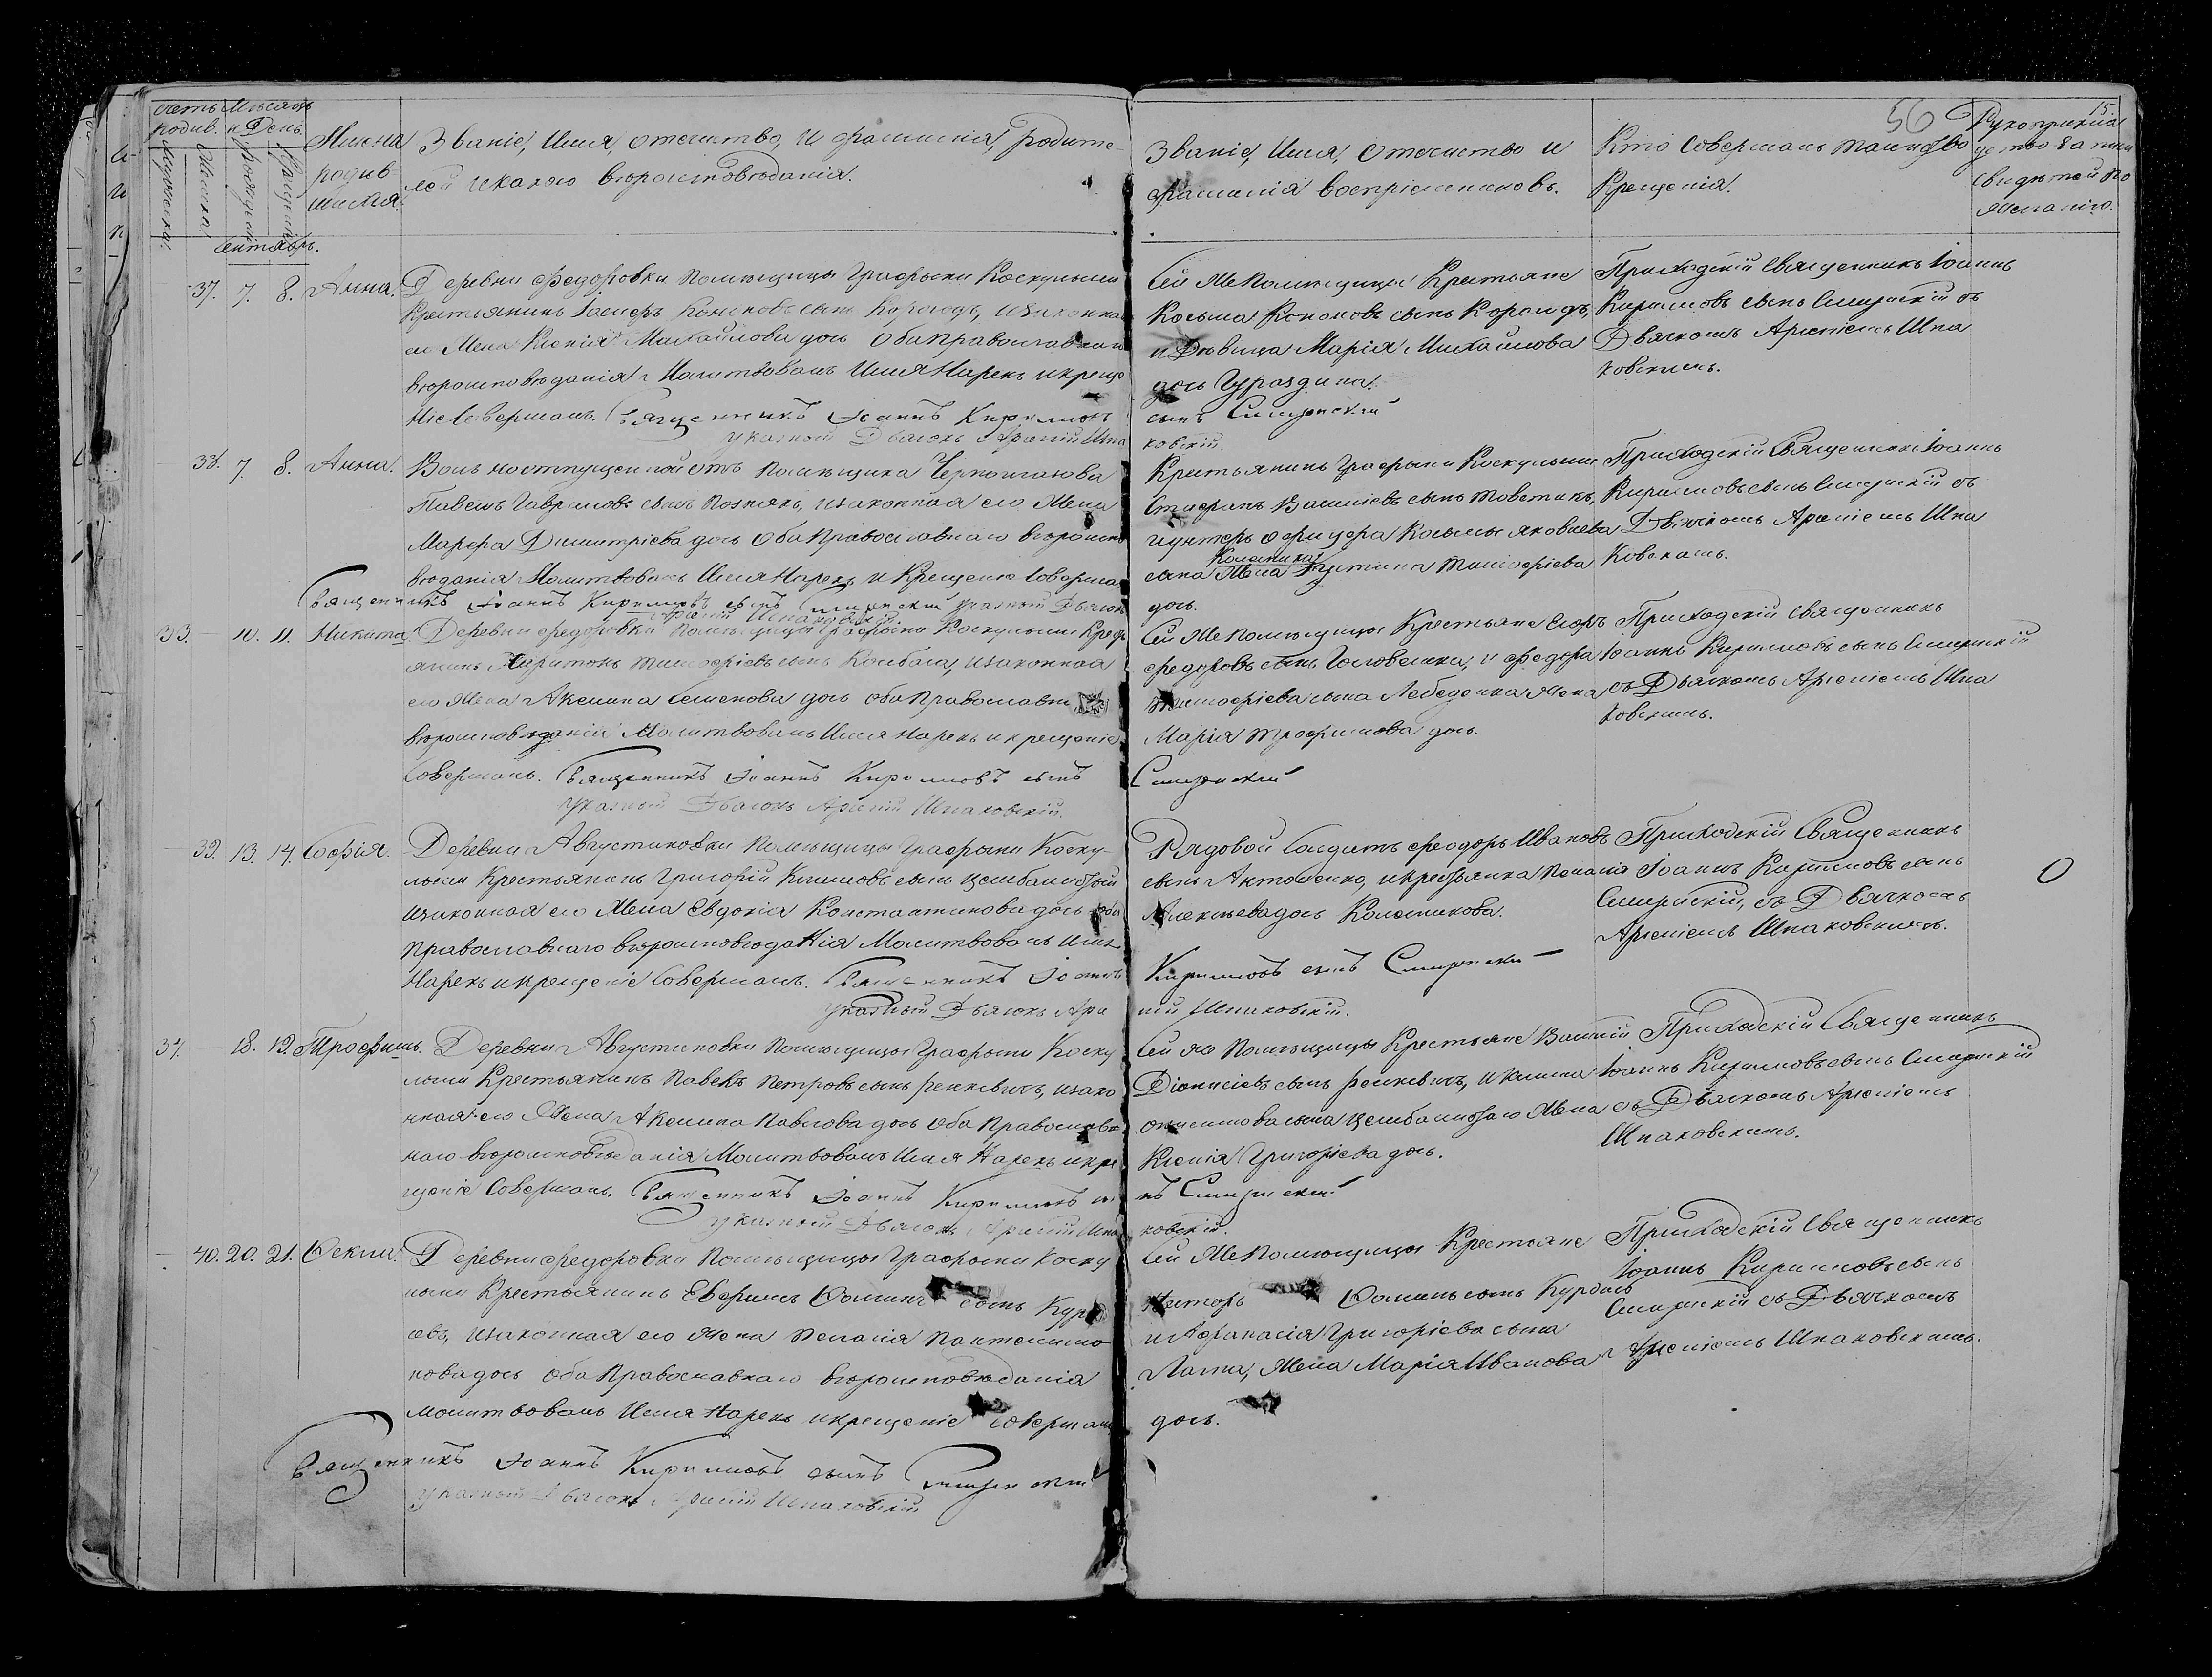 56
15
Счетъ
родив.
Мѣсяцъ
и День.
Мужеска.
Женска.
рожденія
Крещенія
Имена
родив-
шихся.
Званіе, Имя, отечество, и фамилія, родите-
лей и какого вѣроисповѣданія.
Званіе, Имя, Отечество и
фамилія воспріемниковъ.
Кто Совершалъ таинство
Крещенія.
Рукоприклад
ство Записи
свидѣтелей по
желанію.
Сентябрь.
37. 7. 8. Анна.
Деревни Федоровки помѣщицы Графыни Коскульши
Крестьянинъ Кононовъ сынъ Короидъ, и законная
его Жена Ксенія Михайлова дочь Оба православнаго
вѣроисповѣданія Молитвовалъ Имя Нарекъ и креще
ніе Совершалъ. Священникъ Іоаннъ Кириловъ
указной Дьячокъ Арсеній Шпа
Сей же Помѣщицы Крестьяне
Косьма Кононовъ сынъ Короидъ,
и Дѣвица Марія Михайлова
дочь
сынъ
ковскій.
Приходскій Священникъ Іоаннъ
Кириловъ сынъ съ
Дьячкомъ Арсеніемъ Шпа
ковскимъ.
38. 7. 8. Анна.
Вольноотпущенной отъ помѣщика Черноглазова
Павелъ Гавриловъ сынъ Познякъ, и законная его Жена
Марфа Димитріева дочь Оба Православнаго вѣроиспо
вѣданія Молитвовалъ Имя Нарекъ и Крещеніе Совершалъ
Священникъ Іоаннъ Кириловъ сынъ указной Дьячокъ
Арсеній Шпаковскій
Крестьянинъ Графыни Коскульши
Стефанъ Василіевъ сынъ
и унтеръ офицера Косьмы Яковлева
Колесника
сына Жена Тимофіева
дочь.
Приходскій Священникъ Іоаннъ
Кириловъ сынъ съ
Дьячкомъ Арсеніемъ Шпа
Ковскимъ.
33. 10. 11. Никита.
Деревни Федоровки помѣщицы Графыни Коскульши Кресть
янинъ Харитонъ Тимофіевъ сынъ Колбаса, и законная
его Жена Акелина Семенова дочь оба православнаго
вѣроисповѣданія Молитвовалъ Имя нарекъ и крещеніе
Совершалъ. Священникъ Іоаннъ Кириловъ сынъ
указной Дьячокъ Арсеній Шпаковскій.
Сей же Помѣщицы Крестьяне Егоръ
Федоровъ сынъ и Федора
Тимофіева сына Лебеденка жена
Марія Трофимова дочь.
Приходскій Священникъ
Іоаннъ Кириловъ сынъ
съ Дьячкомъ Арсеніемъ Шпа
ковскимъ.
39. 13. 14. Софія.
Деревни Августиновки помѣщицы Графыни Коску-
льши Крестьянинъ Григорій Климовъ сынъ Цымбалистый
и законная его Жена Евдокія Константинова дочь оба
православнаго вѣроисповѣданія Молитвовалъ Имя
Нарекъ и крещеніе Совершалъ. Священникъ Іоаннъ
указной Дьячокъ Арсе
Рядовой Солдатъ Феодоръ Ивановъ
сынъ Антоненко, и крестьянка Пелагія
Алексѣева дочь Колесникова.
Кириловъ сынъ
ній Шпаковскій.
Приходскій Священникъ
Іоаннъ Кириловъ сынъ
съ Дьячкомъ
Арсеніемъ Шпаковскимъ.
34. 18. 19. Трофимъ.
Деревни Августиновки помѣщицы Графыни Коску
льши Крестьянинъ Павелъ Петровъ сынъ и зако
нная его Жена Акелина Павлова дочь оба православ
наго вѣроисповѣданія Молитвовалъ Имя Нарекъ и кре
щеніе Совершалъ. Священникъ Іоаннъ Кириловъ сы
указной Дьячокъ Арсеній Шпа
Сей же Помѣщицы Крестьяне Василій
Діонисіевъ сынъ и Клима
сына Цымбалистаго Жена
Ксенія Григоріева дочь.
нъ
ковскій.
Приходскій Священникъ
Іоаннъ Кириловъ сынъ
съ Дьячкомъ Арсеніемъ
Шпаковскимъ.
40. 20. 21. Фекла.
Деревни Федоровки помѣщицы Графыни Коску
льши Крестьянинъ Ефимъ Фоминъ сынъ Курд
, и законная его жена Пелагія Пантелимо-
нова дочь оба Православнаго вѣроисповѣданія
молитвовалъ Имя Нарекъ и крещеніе совершалъ
Священникъ Іоаннъ Кириловъ сынъ
указной Дьячокъ Арсеній Шпаковскій
Сей же Помѣщицы Крестьяне
Фоминъ сынъ
и Афанасія Григоріева сына
Жена Марія Иванова
дочь.
Приходскій Священникъ
Іоаннъ Кириловъ сынъ
съ Дьячкомъ
Арсеніемъ Шпаковскимъ.